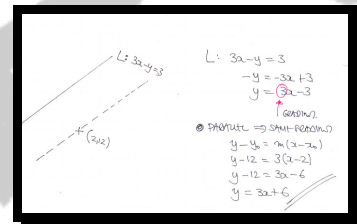 L: 3x-y=3
(2,12)
L: 3x-y=3
-y=-3x+3
y=3x-3
GRADIENT
PARALLEL ⇒ SAME GRADIENT
y-y₀=m(x-x₀)
y-12=3(x-2)
y-12=3x-6
y=3x+6